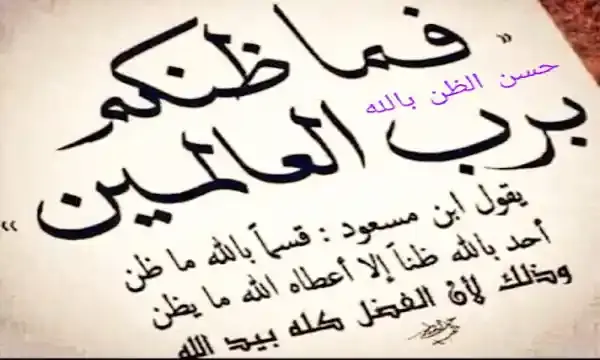 « فما ظنكم
حسن الظن بالله
برب العالمين »
يقول ابن مسعود : قسماً بالله ما ظن
أحد بالله ظناً إلا أعطاه الله ما يظن
وذلك لأن الفضل كله بيد الله